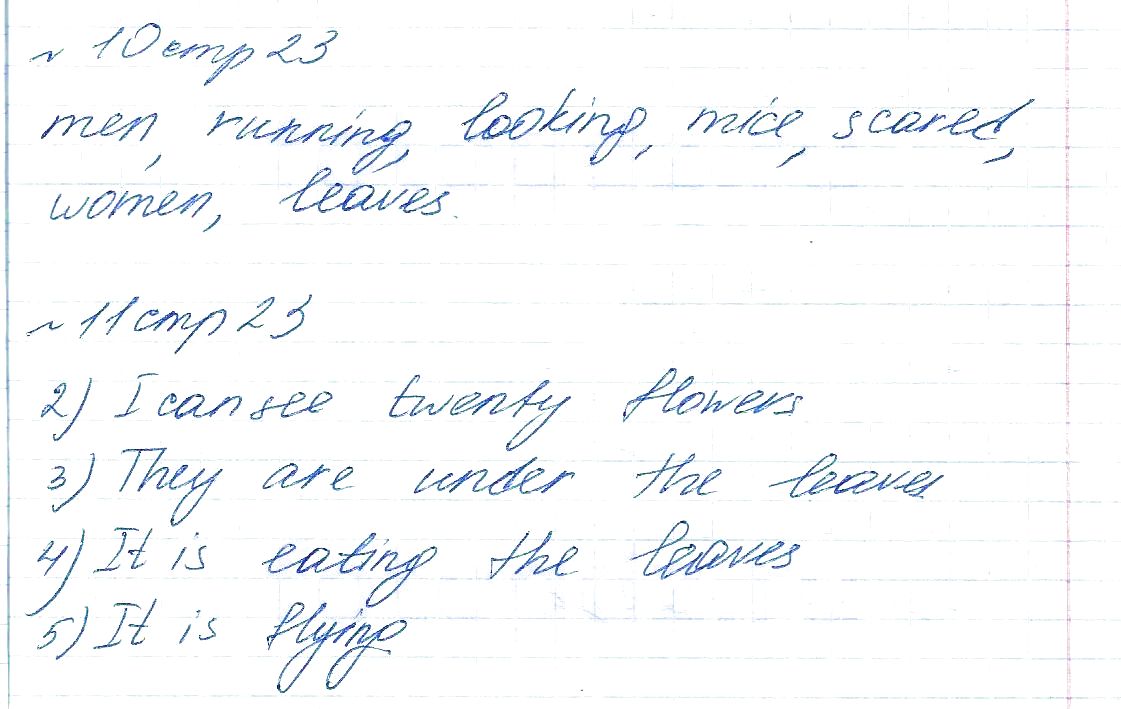 ~ 10 стр 23
men, running, looking, mice, scared,
women, leaves.
~ 11 стр 23
2) I can see twenty flowers
3) They are under the leaves
4) It is eating the leaves
5) It is flying